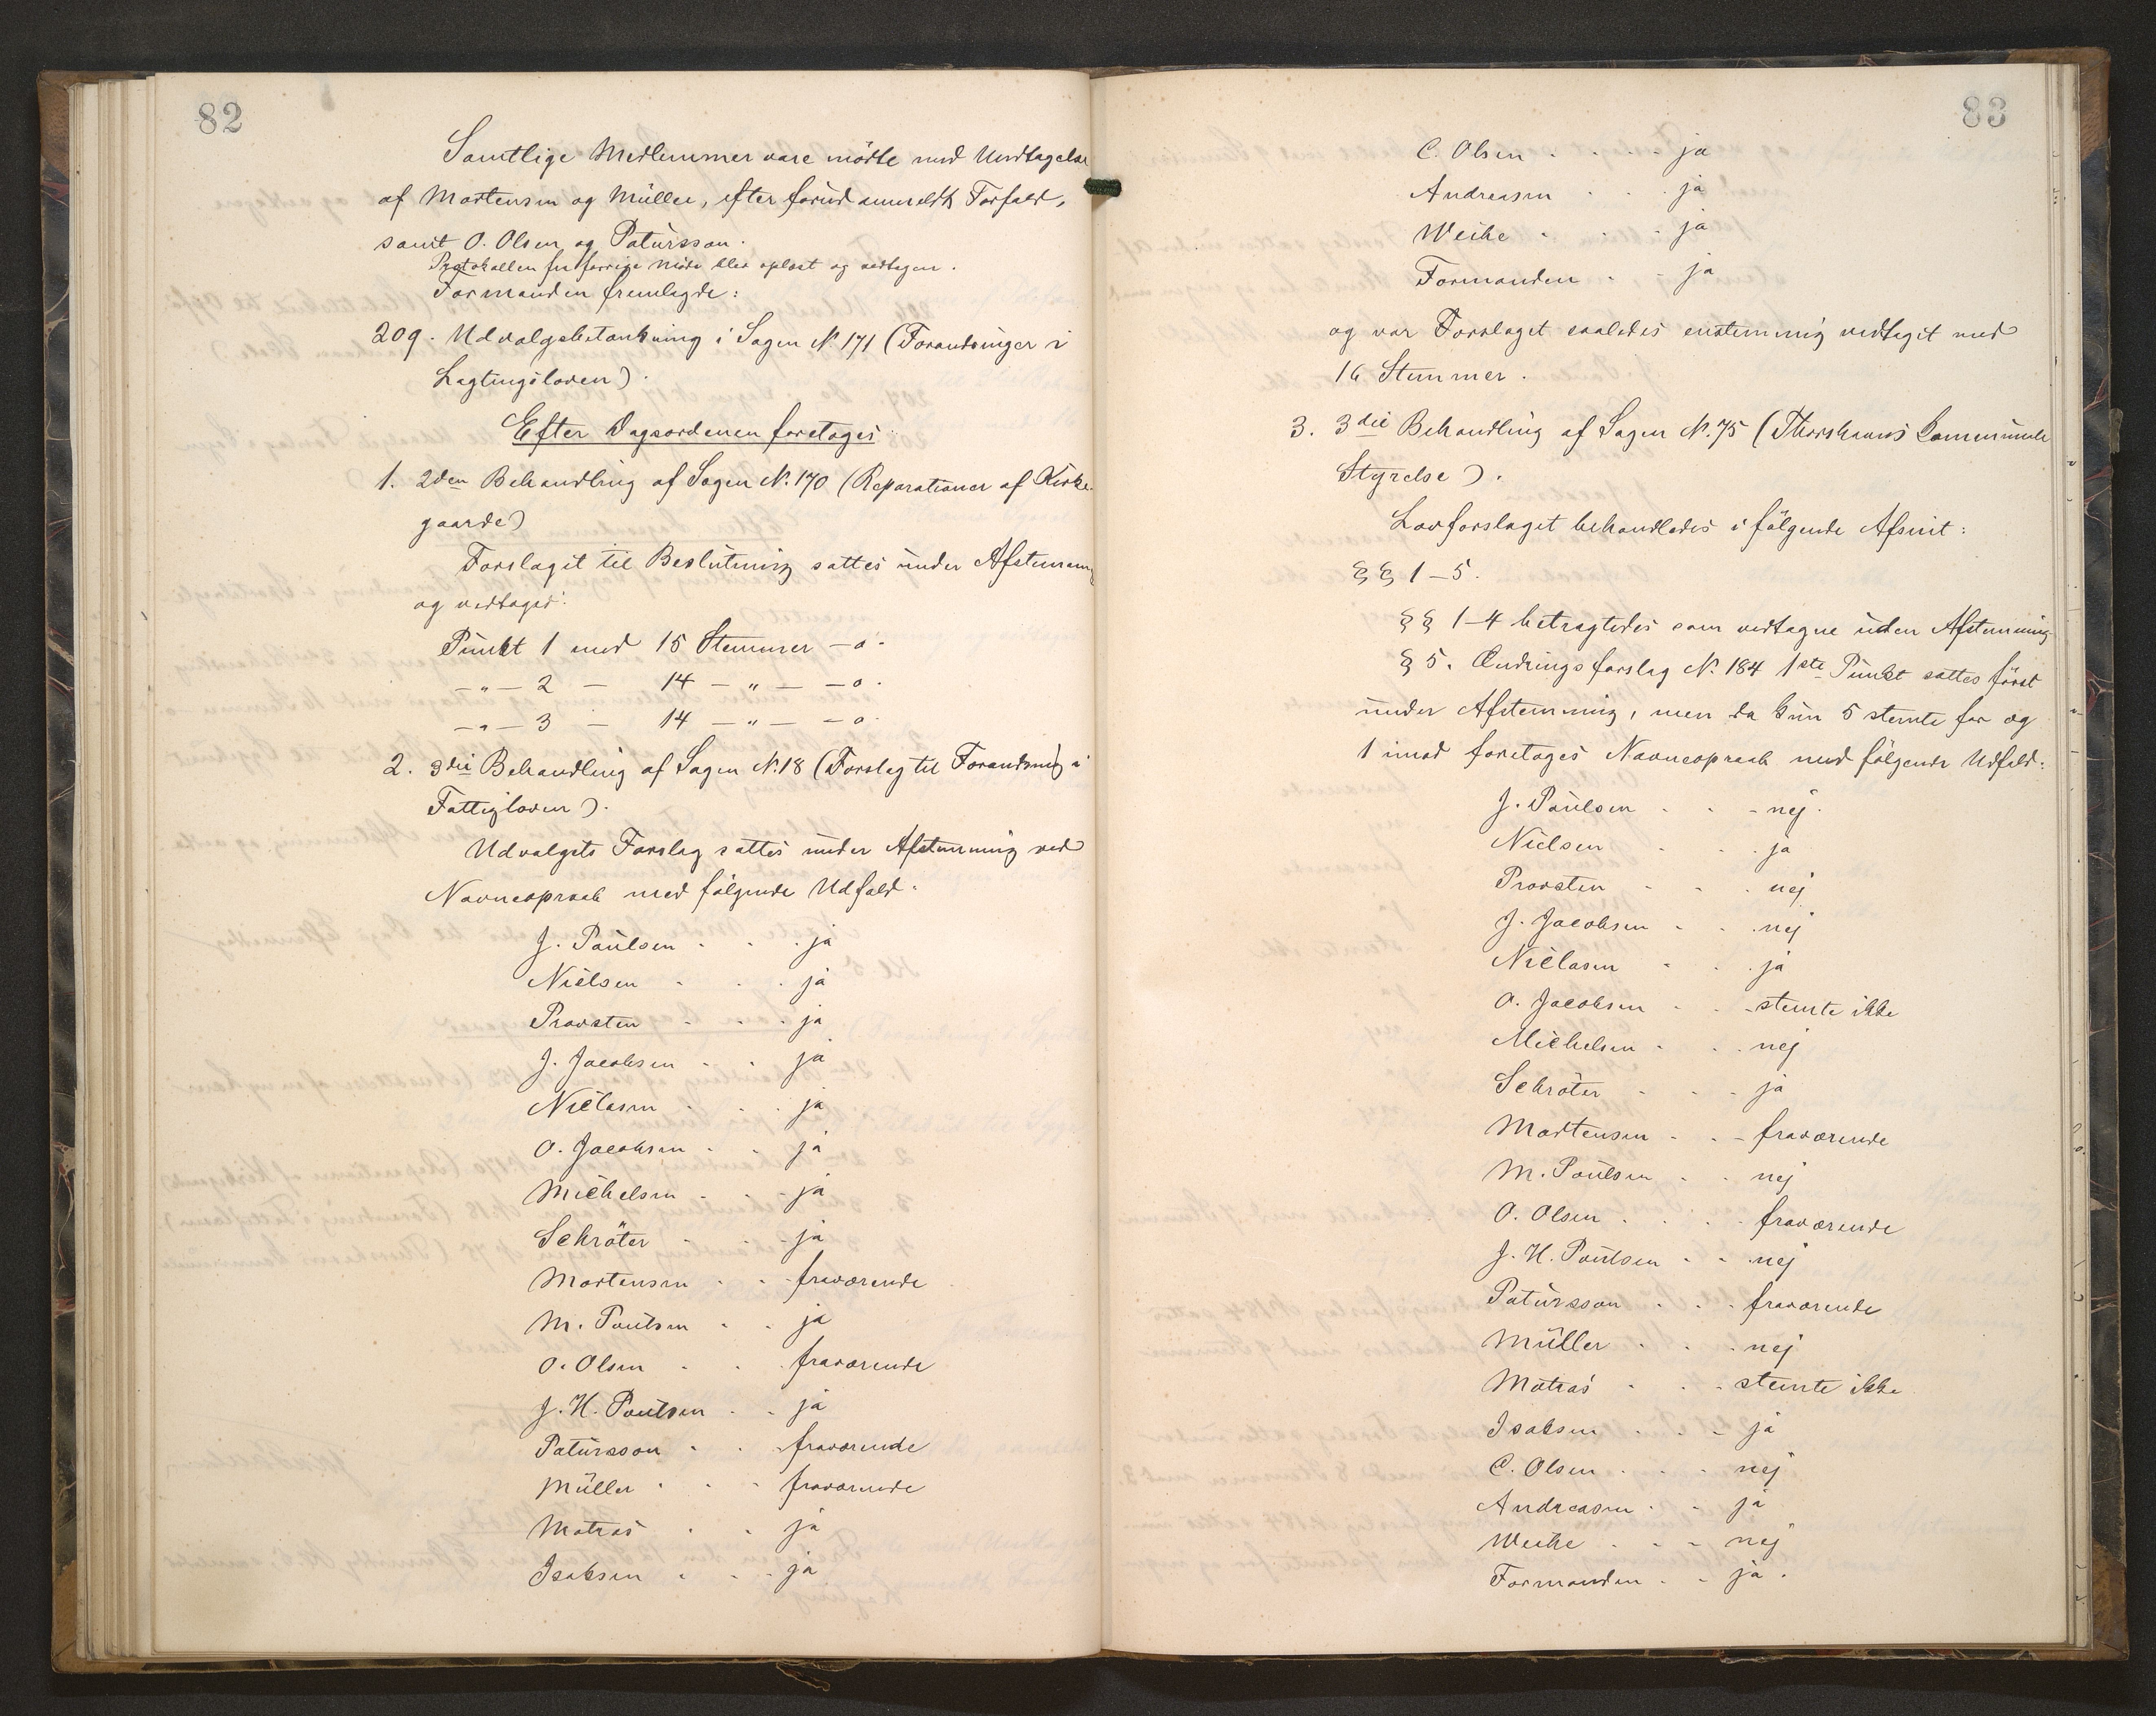 82
Samtlige Medlemmer vare mödte med Undtagelse
af Mortensen og Müller, efter forud anmeldt Forfald,
samt O. Olsen og Patursson.
Protokollen for forrige Möde blev oplæst og vedtagen.
Formanden fremlagde:
209. Udvalgsbetænkning i Sagen N. 171 (Forandringer i
Lagtingsloven).
Efter Dagsordenen foretoges
1. 2den Behandling af Sagen N. 170 (Reparationer af Kirke-
gaarde)
Forslaget til Beslutning sattes under Afstemning
og vedtoges:
Punkt 1 med 15 Stemmer - o.
-"- 2 - 14 -"- - o.
-"- 3 - 14 -"- - o.
2. 3die Behandling af Sagen N. 18 (Forslag til Forandring i
Fattigloven).
Udvalgets Forslag sattes under Afstemning ved
Navneopraab med fölgende Udfald.
J. Paulsen . . . ja
Nielsen . . . ja
Provsten . . . ja
J. Jacobsen . . ja
Niclasen . . . ja
O. Jacobsen . . ja
Michelsen . . . ja
Schröter . . . ja
Mortensen . . . fraværende
M. Poulsen . . ja
O. Olsen . . . fraværende
J. H. Poulsen . . ja
Patursson . . . fraværende
Müller . . . fraværende
Matras . . ja
Isaksen . . . ja
83
C. Olsen . . . . ja
Andreasen . . . ja
Weihe . . . ja
Formanden . . ja
og var Forslaget saaledes enstemmig vedtaget med
16 Stemmer.
3. 3die Behandling af Sagen N. 75 (Thorshavns Kommunale
Styrelse).
Lovforslaget behandledes i fölgende Afsnit:
§§ 1-5.
§§ 1-4 betragtedes som vedtagne uden Afstemning.
§ 5. Ændringsforslag N. 184 1ste Punkt sattes först
under Afstemning, men da kun 5 stemte for og
1 imod foretoges Navneopraab med fölgende Udfald:
J. Paulsen . . - nej.
Nielsen . . . ja
Provsten . . . nej
J. Jacobsen . . . nej
Niclasen . . . ja
O. Jacobsen . . - stemte ikke
Michelsen . . . nej
Schröter . . . ja
Mortensen . . - fraværende
M. Poulsen . . nej
O. Olsen . . . . fraværende
J. H. Poulsen . . . nej
Patursson . . . fraværende
Müller . . . nej
Matras . . . stemte ikke
Isaksen . . - ja
C. Olsen . . . nej
Andreasen . . ja
Weihe . . . nej
Formanden . . ja.